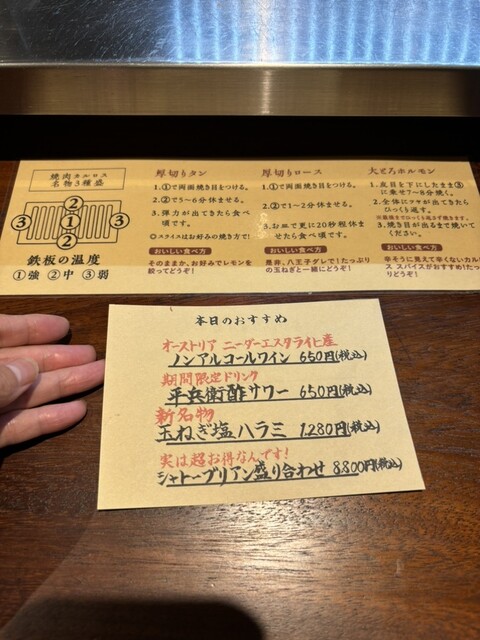 焼肉カルロス
名物3種盛
②
③ ① ③
②
鉄板の温度
①強 ②中 ③弱
厚切りタン
1.①で両面焼き目をつける。
2.②で5～6分休ませる。
3.弾力が出てきたら食べ
頃です。
◎スライスはお好みの焼き方で!
おいしい食べ方
そのままか、お好みでレモンを
絞ってどうぞ!
厚切りロース
1.①で両面焼き目をつける。
2.②で1～2分休ませる。
3.お皿で更に20秒程休ま
せたら食べ頃です。
おいしい食べ方
是非、八王子ダレで!たっぷり
の玉ねぎと一緒にどうぞ!
大とろホルモン
1.皮目を下にしたまま③
に乗せ7～8分焼く。
2.全体にツヤが出てきたら
ひっくり返す。
3.焼き目が出るまで焼いて
ください。
おいしい食べ方
辛そうに見えて辛くないカル
ス スパイスがおすすめ!たっ
りどうぞ!
本日のおすすめ
オーストリア ニーダーエスタライヒ産
ノンアルコールワイン 650円(税込)
期間限定ドリンク
平兵衛酢サワー 650円(税込)
新名物
玉ねぎ塩ハラミ 1,280円(税込)
実は超お得なんです!
シャトーブリアン盛り合わせ 8,800円(税込)